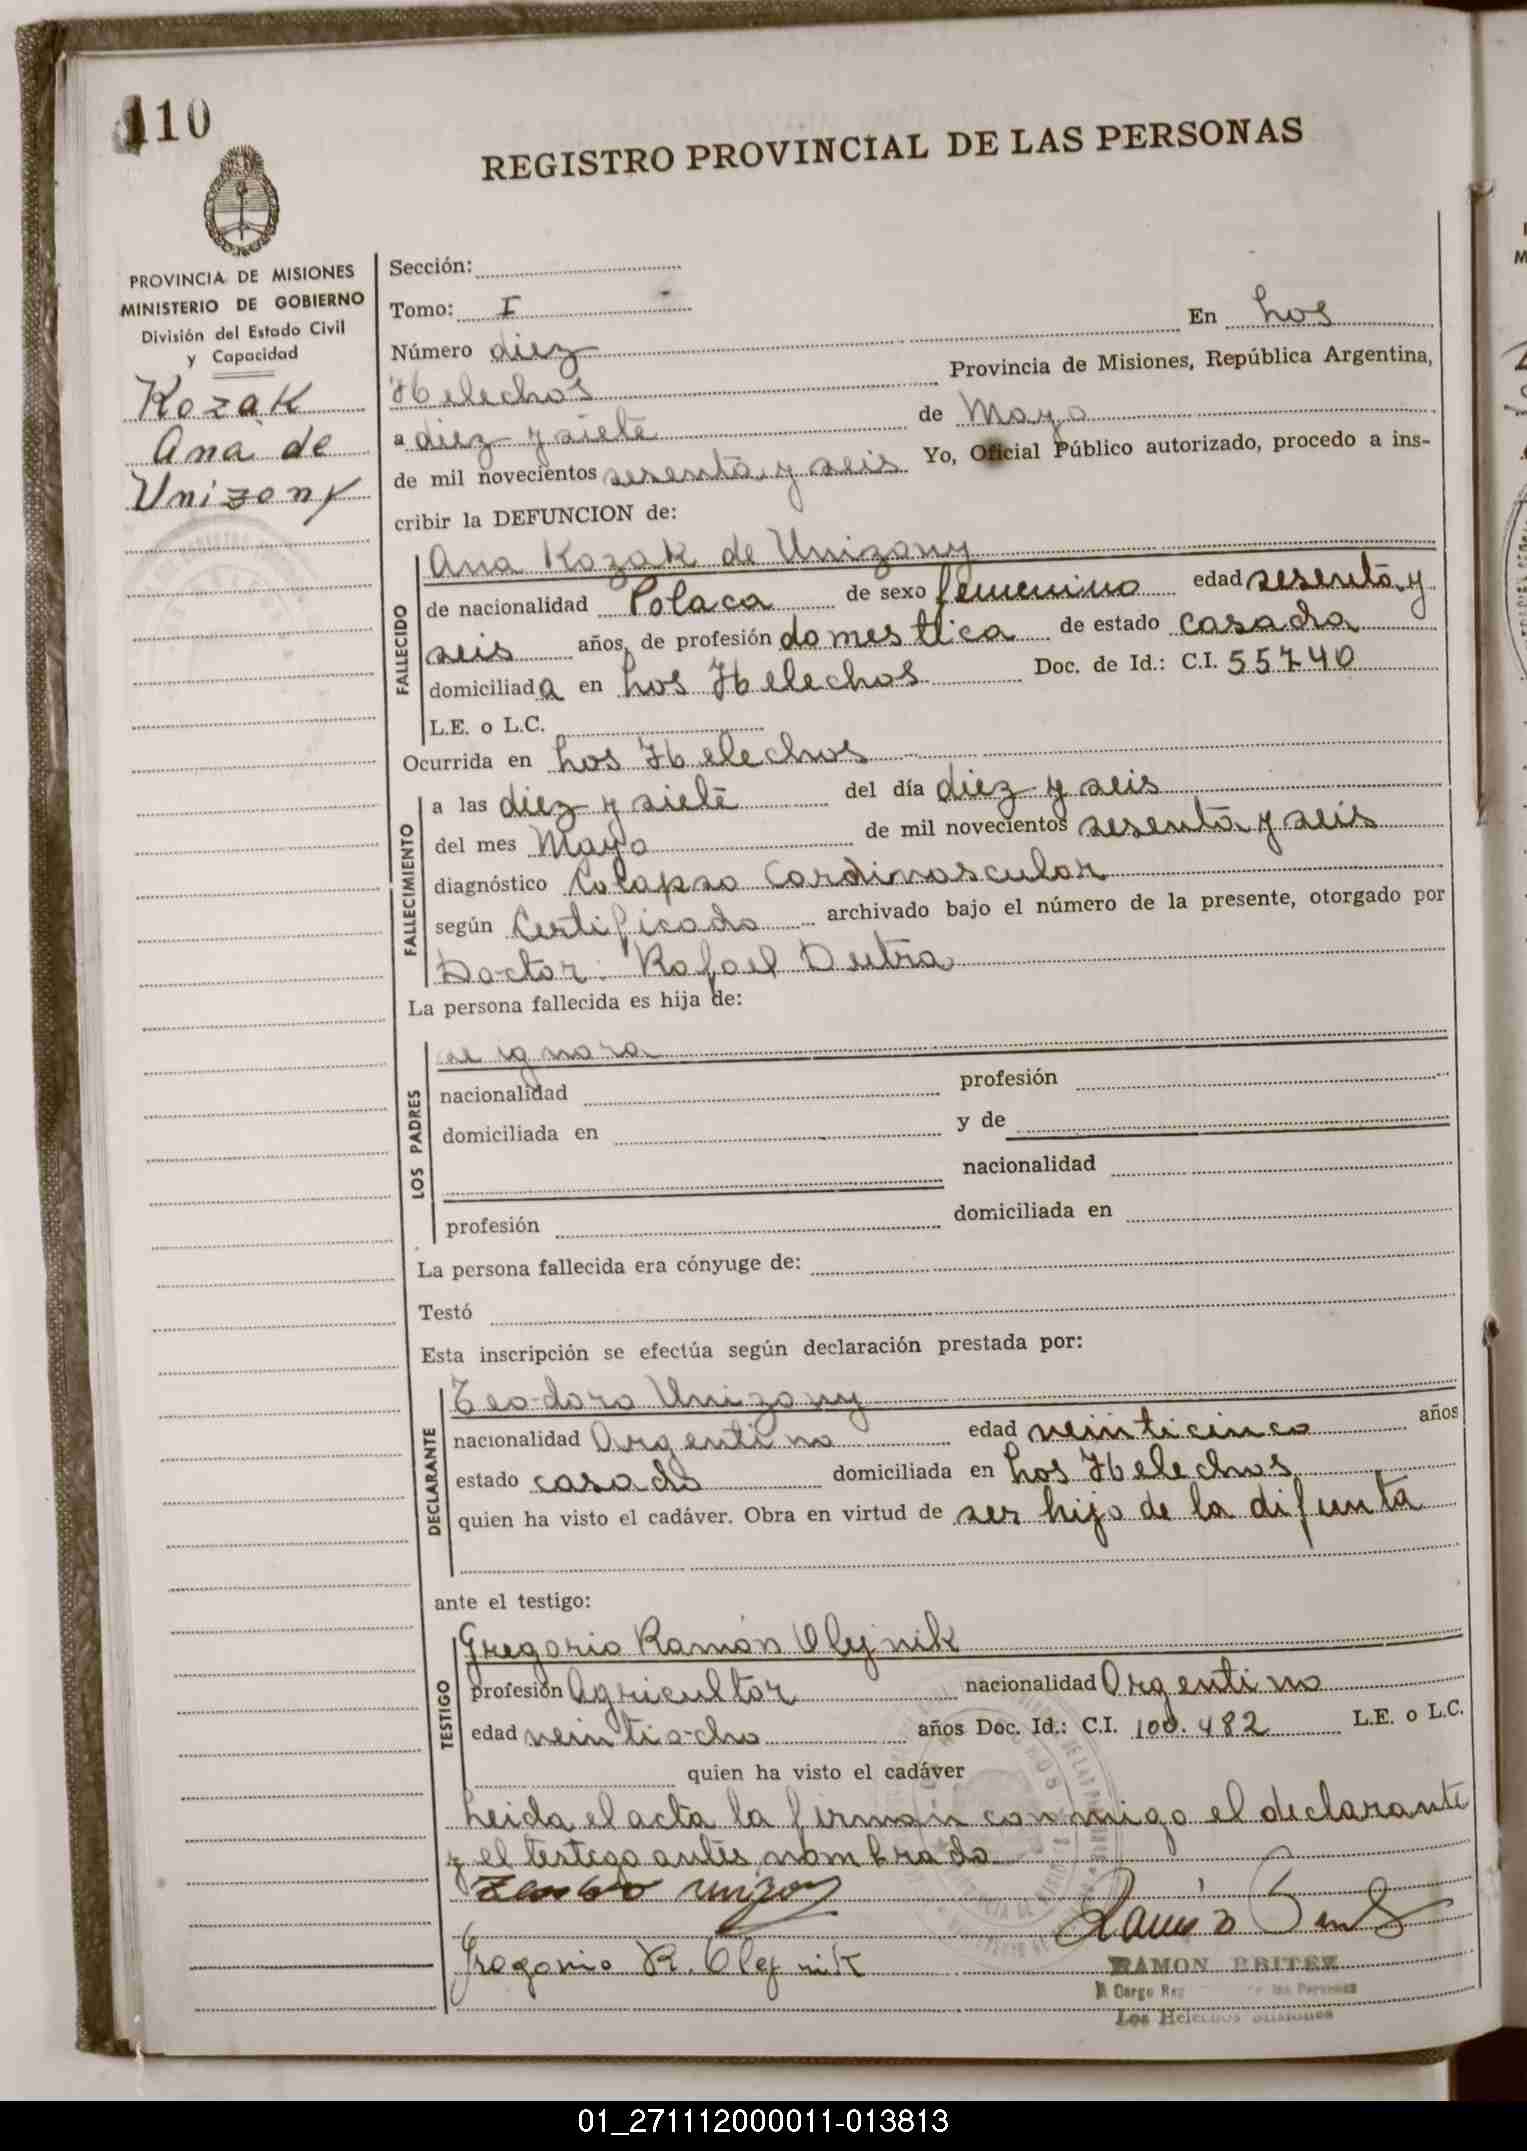 110
REGISTRO PROVINCIAL DE LAS PERSONAS
PROVINCIA DE MISIONES
MINISTERIO DE GOBIERNO
División del Estado Civil
y Capacidad
Kozak
Ana de
Unizony
Sección:
Tomo: I
Número diez En Los
Helechos Provincia de Misiones, República Argentina,
a diez y siete de Mayo
de mil novecientos sesenta y seis Yo, Oficial Público autorizado, procedo a ins-
cribir la DEFUNCION de:
FALLECIDO
Ana Kozak de Unizony
de nacionalidad Polaca de sexo femenino edad sesenta y
seis años, de profesión domestica de estado casada
domiciliada en Los Helechos Doc. de Id.: C.I. 55740
L.E. o L.C.
Ocurrida en Los Helechos
FALLECIMIENTO
a las diez y siete del día diez y seis
del mes Mayo de mil novecientos sesenta y seis
diagnóstico Colapso Cardivascular
según Certificado archivado bajo el número de la presente, otorgado por
Doctor: Rafael Dutra
La persona fallecida es hija de:
LOS PADRES
se ignora
nacionalidad profesión
domiciliada en y de
nacionalidad
profesión domiciliada en
La persona fallecida era cónyuge de:
Testó
Esta inscripción se efectúa según declaración prestada por:
DECLARANTE
Teodoro Unizony
nacionalidad Argentino edad veinticinco años
estado casado domiciliada en Los Helechos
quien ha visto el cadáver. Obra en virtud de ser hijo de la difunta
ante el testigo:
TESTIGO
Gregorio Ramón Olejnik
profesión Agricultor nacionalidad Argentino
edad veintiocho años Doc. Id.: C.I. 100.482 L.E. o L.C.
quien ha visto el cadáver
Leida el acta la firman conmigo el declarante
y el testigo antes nombrado
Gregorio R. Olejnik
RAMON BRITEZ
A Cargo Reg de las Personas
Los Helechos Misiones
01_271112000011-013813